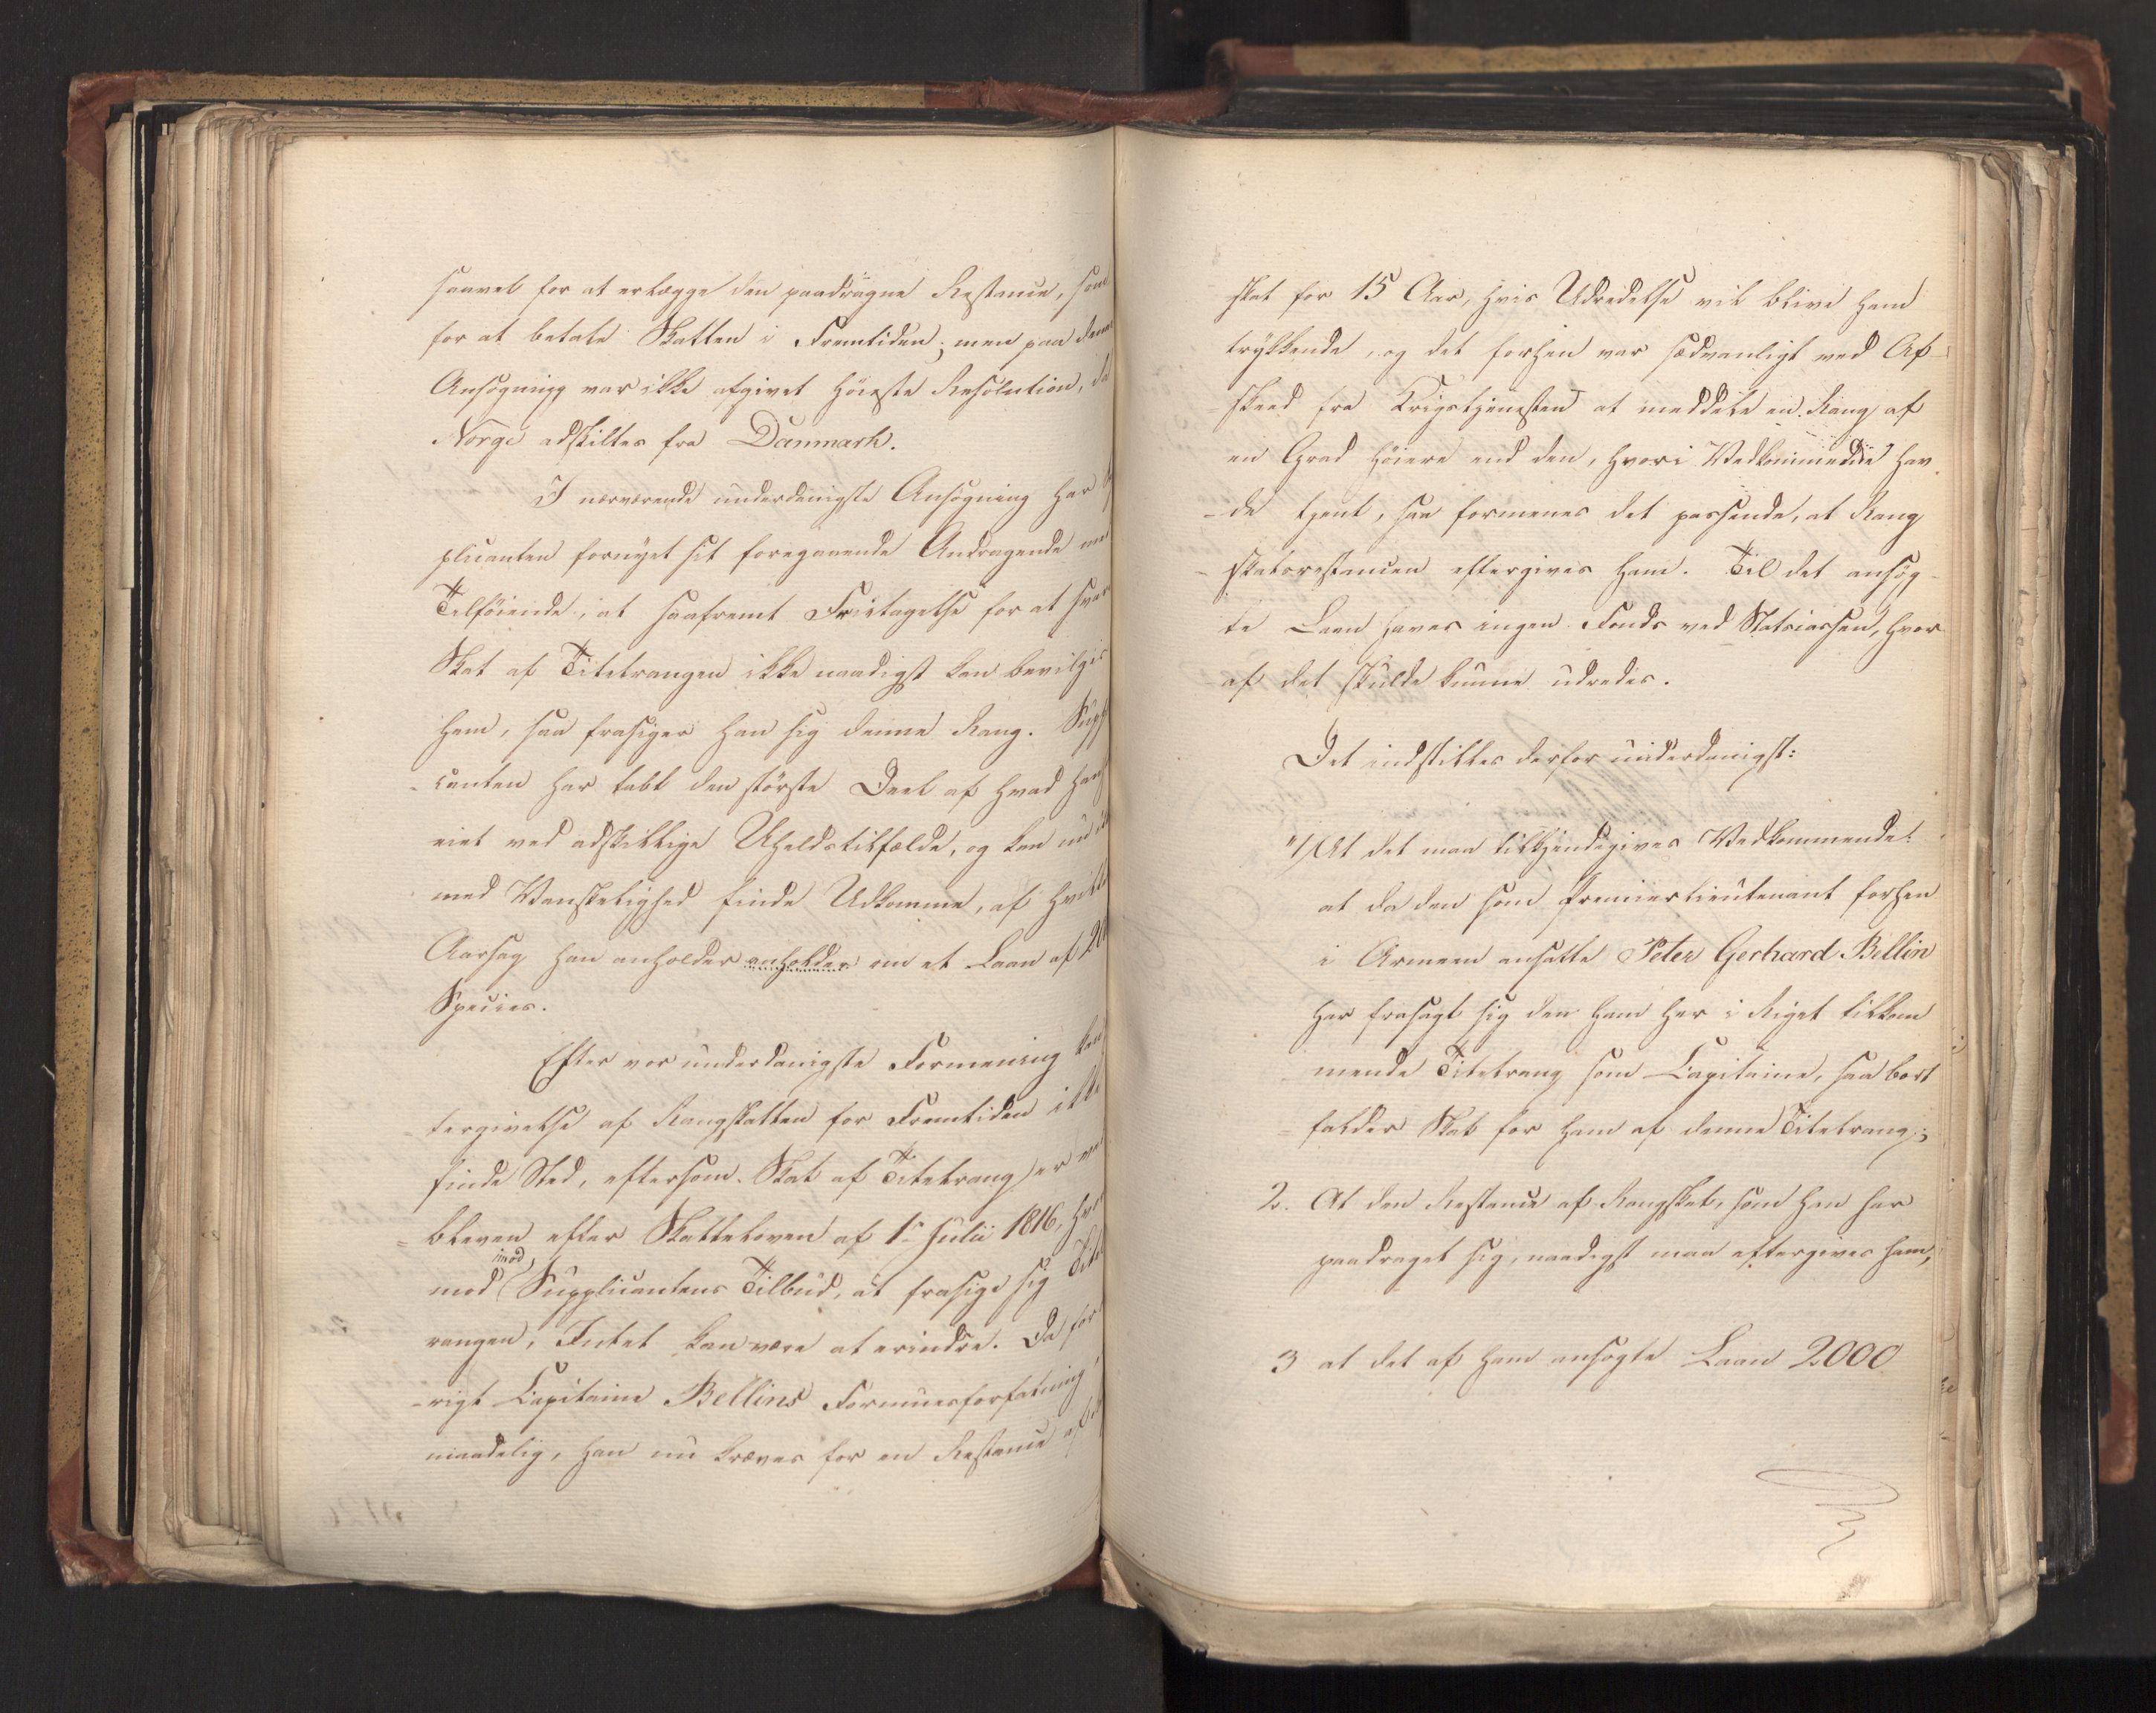 saavel for at erlægge den paadragne Restance, som
for at betale Skatten i Fremtiden; men paa denne
Ansøgning var ikke afgivet høieste Resolution, da
Norge adskiltes fra Danmark.
I nærværende underdanigste Ansøgning har
plicanten fornyet sit foregaaende Andragende med
Tilføiende, at saafremt Fritagelse for at svar
Skat af Titelrangen ikke naadigst kan bevilges
ham, saa frasiger han sig denne Rang. Suppl
-canten har tabt den største Deel af hvad han
eiet ved adskillige Uheldstilfælde, og kan nu
med Vanskelighed finde Udkomme, af hvilke
Aarsag han anholder anholder om et Laan af 200
Species.
Efter vor underdanigste Formening kan
tergivelse af Rangskatten for Fremtiden ikke
finde Sted, eftersom Skat af Titelrang er
= bleven efter Skatteloven af 1ste Julii 1816, hvor
mod imod Supplicantens Tilbud, at frasige sig Titel
rangen, Intet kan være at erindre. Da for
-rigt Capitaine Bellins Formuesforfatning
maadelig, han nu kræves for en Restance af
skat for 15 Aar, hvis Udredelse vil blive ham
trykkende, og det forhen var sædvanligt ved Af-
-skeed fra Krigstjenesten at meddele en Rang af
en Grad høiere end den, hvori Vedkommende hav
-de tjent, saa formenes det passende, at Rang
-skatsrestancen eftergives ham. Til det ansøg-
te Laan haves ingen Fonds ved Statscassen, hvor
af det skulde kunne udredes.
Det indstilles derfor underdanigst:
1) At det maa tilkjendegives Vedkommende:
at da den som Premierlieutenant forhen
i Armeen ansatte Peter Gerhard Bellin
har frasagt sig den ham her i Riget tilkom
mende Titelrang som Capitaine, saa bort
= falder Skat for ham af denne Titelrang;
2. At den Restance af Rangskat, som han har
paadraget sig, naadigst maa eftergives ham,
3 at det af ham ansøgte Laan 2000